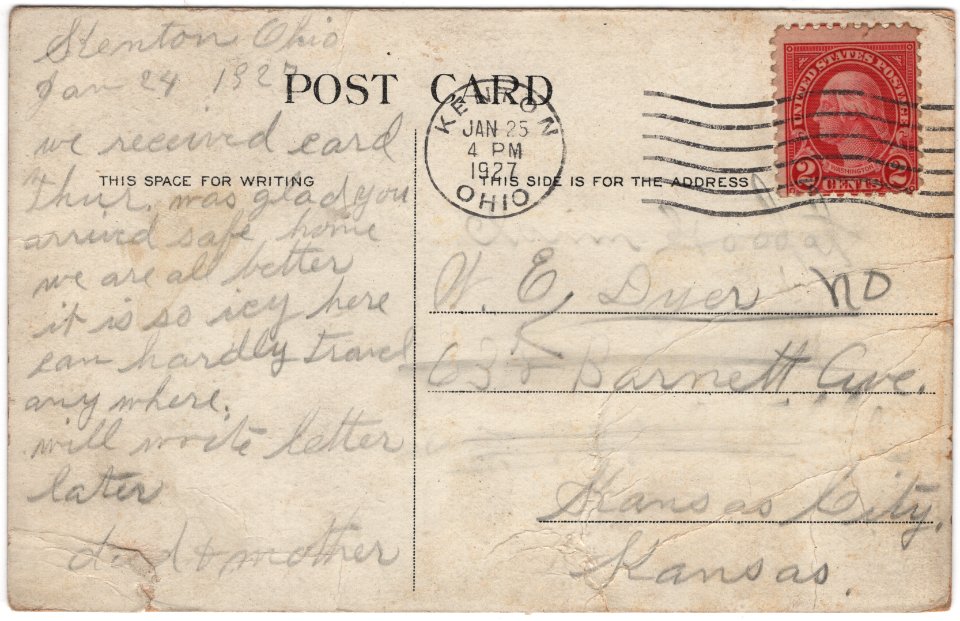 Kenton Ohio
Jan 24 1927
POST CARD
we received card
THIS SPACE FOR WRITING
Thur. was glad you
arrived safe home
we are all better
it is so icy here
can hardly travel
any where.
will write letter
later
dad & mother
KENTON
JAN 25
4 PM
1927
OHIO
UNITED STATES POSTAGE
WASHINGTON
2 CENTS 2
THIS SIDE IS FOR THE ADDRESS
W. E. Dyer no
Barnett Ave.
Kansas City,
Kansas